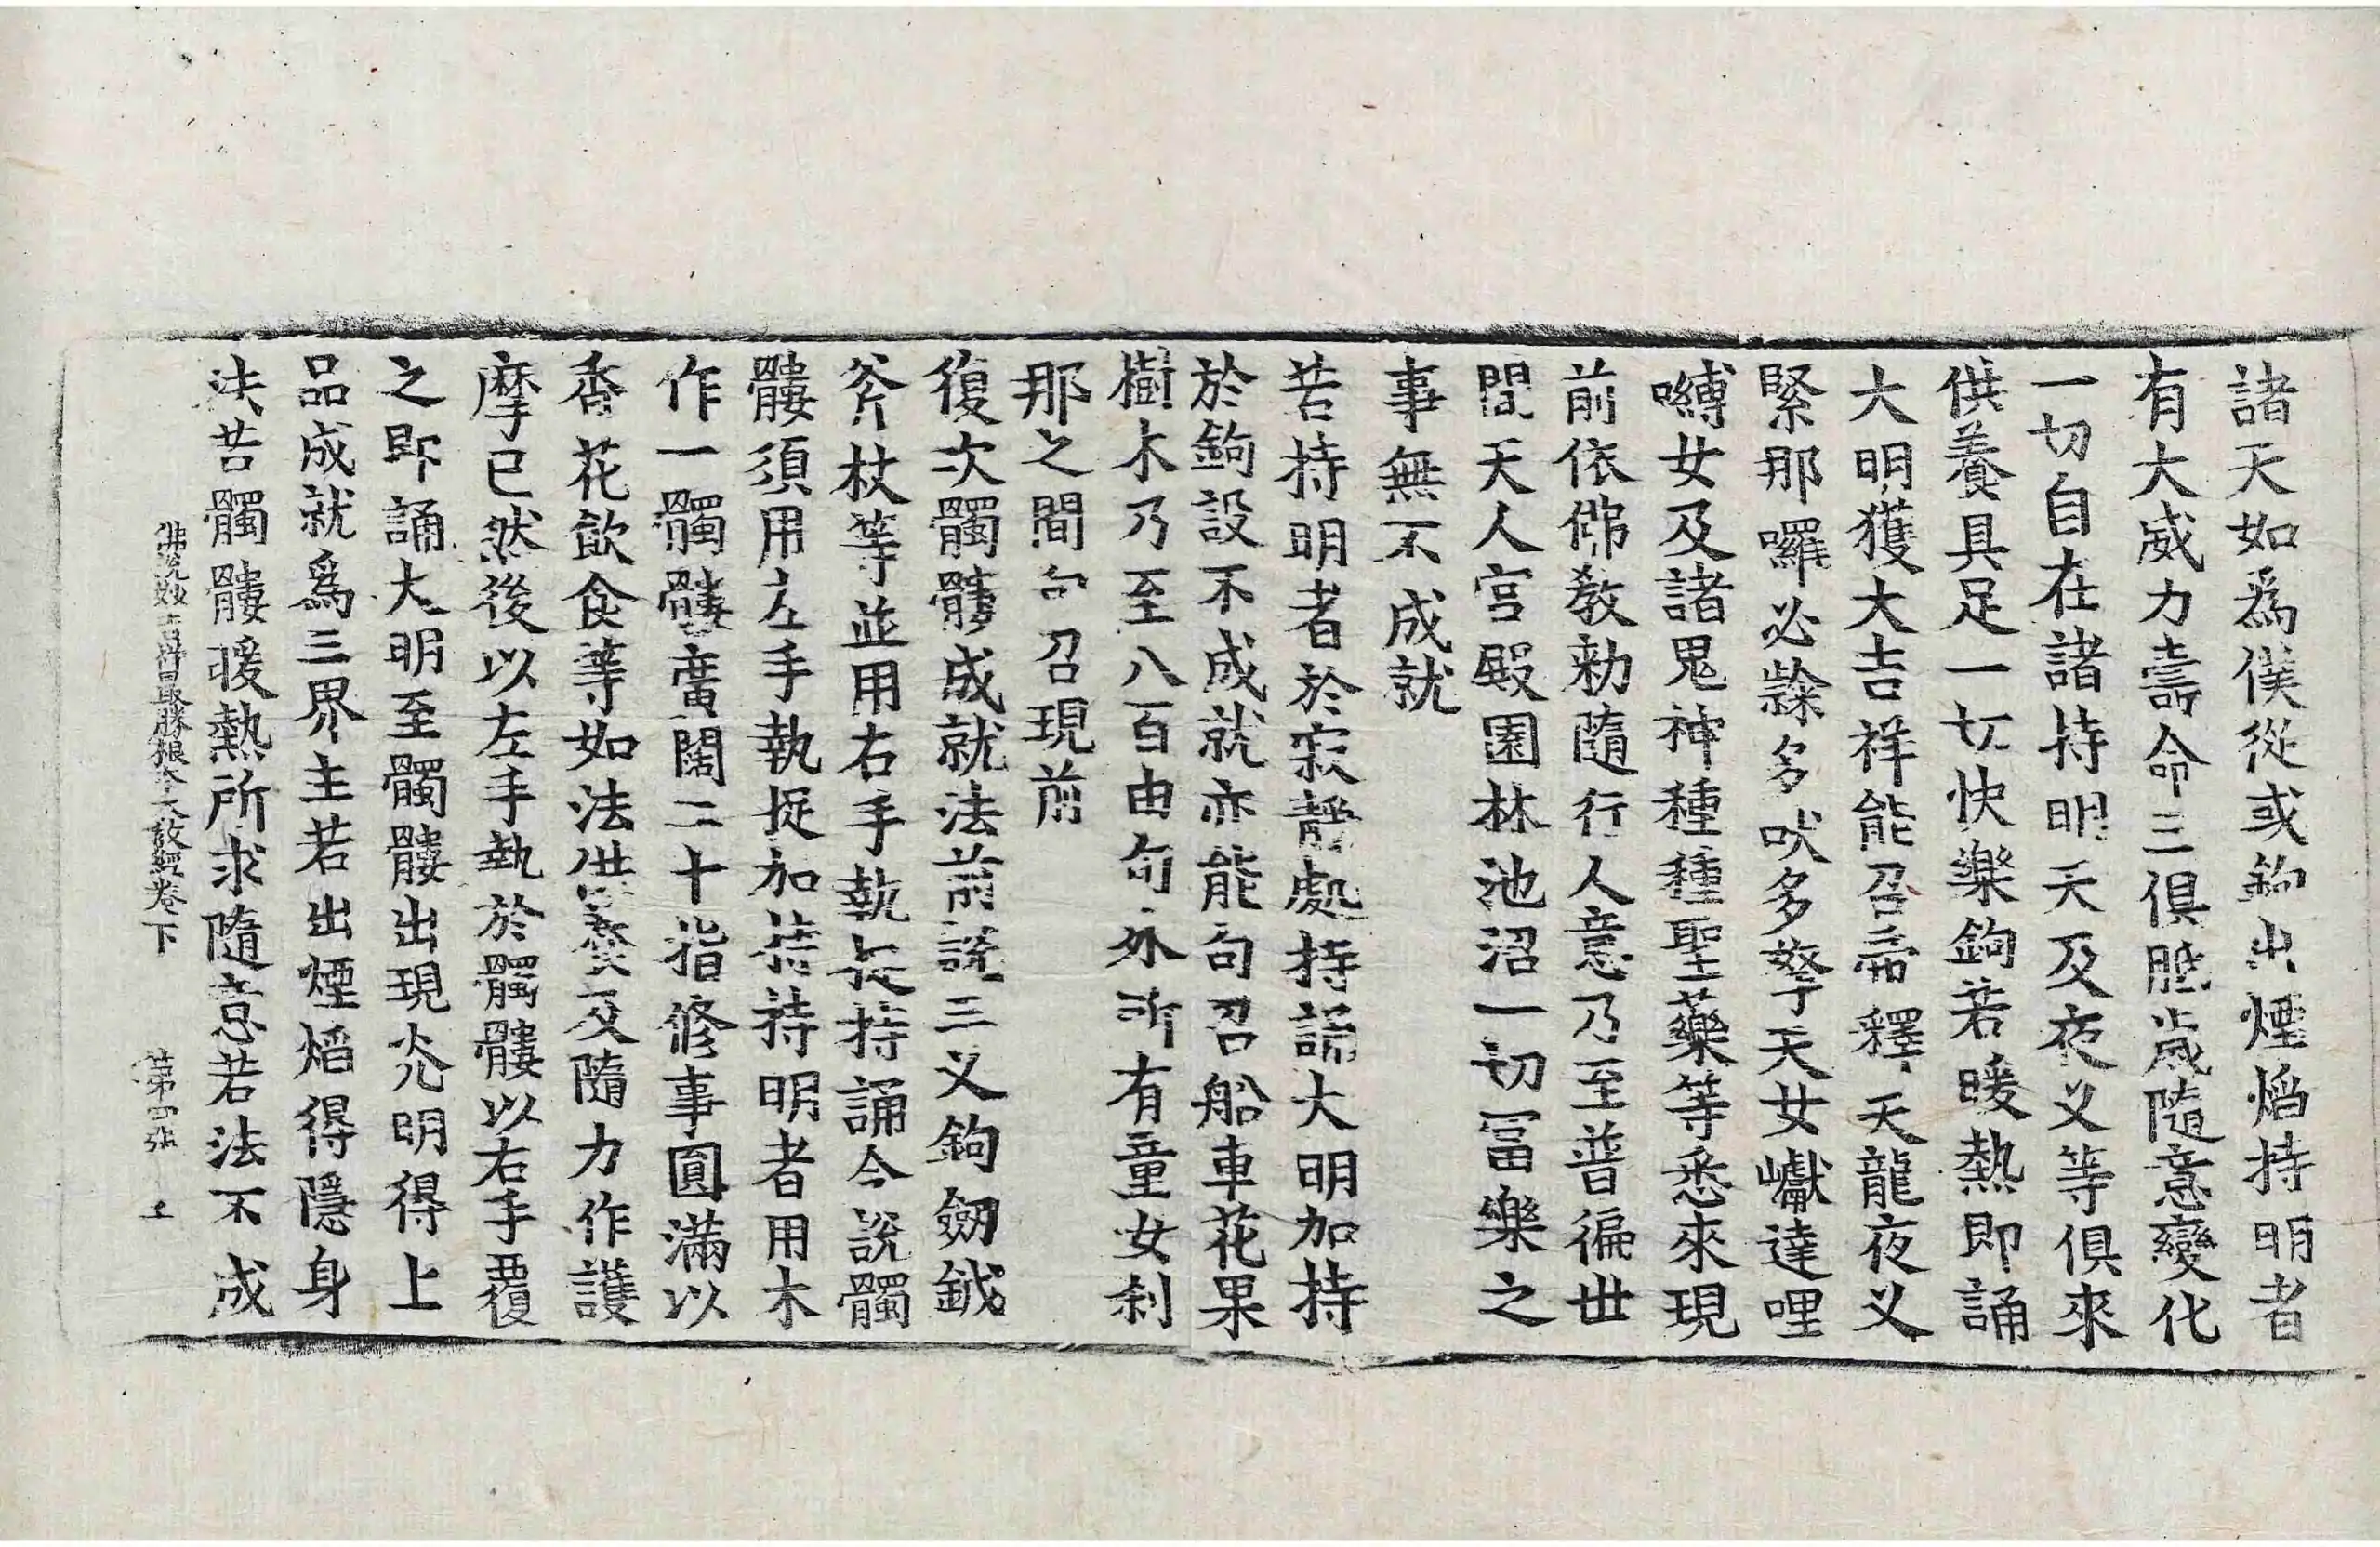 諸天如爲僕從或鉤出煙焰持明者
有大威力壽命三俱胝歲隨意變化
一切自在諸持明天及夜义等俱來
供養具足一切快樂鉤若暖熱即誦
大明獲大吉祥能召帝釋天龍夜义
緊那囉必隸多吠多拏天女巘達哩
嚩女及諸鬼神種種聖藥等悉來現
前依佛教勑隨行人意乃至普徧世
間天人宮殿園林池沼一切冨樂之
事無不成就
若持明者於寂靜處持誦大明加持
於鉤設不成就亦能句召船車花果
樹木乃至八百由旬外所有童女刹
那之間句召現前
復次髑髏成就法前說三义鉤劒鉞
斧杖等並用右手執持誦今說髑
髏須用左手執捉加持持明者用木
作一髑髏廣闊二十指修事圓滿以
香花飲食等如法供養及隨力作護
摩已然後以左手執於髑髏以右手覆
之即誦大明至髑髏出現光明得上
品成就爲三界主若出煙焰得隱身
法若髑髏暖熱所求隨意若法不成
佛說妙吉祥最勝根本大教經卷下 第四張